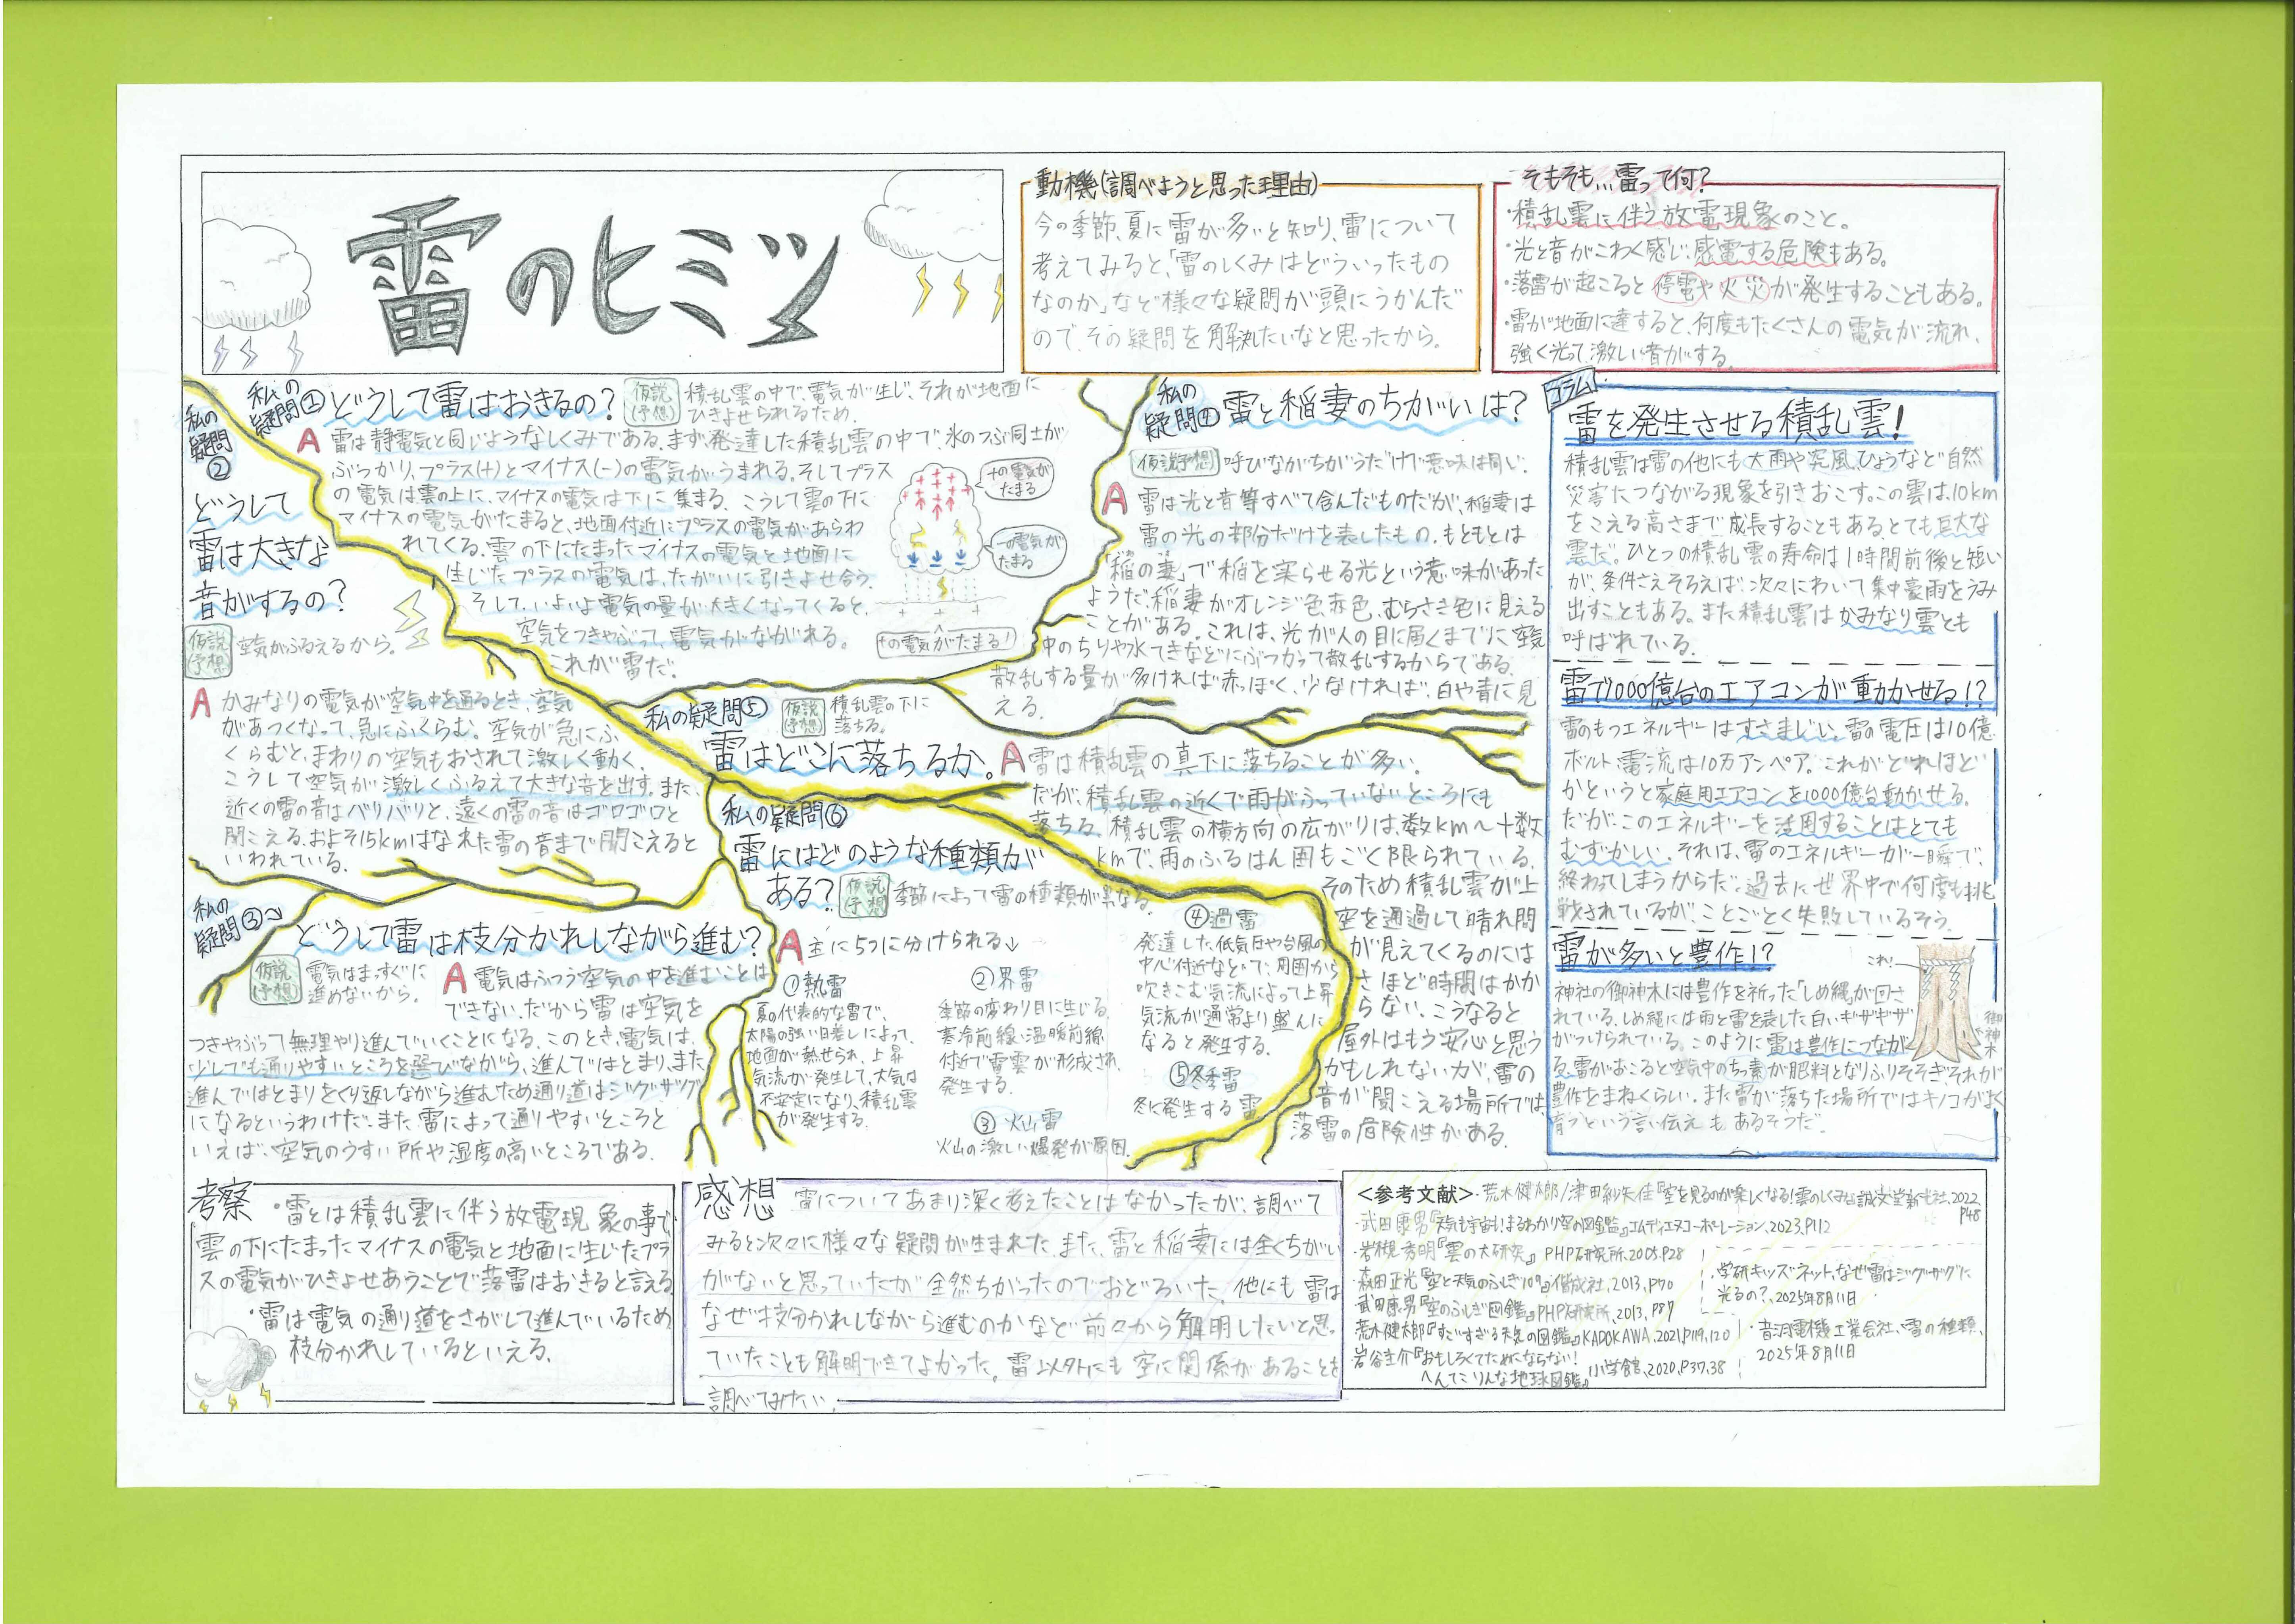 雷のヒミツ
動機(調べようと思った理由)
今の季節、夏に雷が多いと知り、雷について
考えてみると、「雷のしくみはどういったもの
なのか」など様々な疑問が頭にうかんだ
ので、その疑問を解決したいなと思ったから。
そもそも…雷って何?
・積乱雲に伴う放電現象のこと。
・光と音がこわく感じ、感電する危険もある。
・落雷が起こると停電や火災が発生することもある。
・雷が地面に達すると、何度もたくさんの電気が流れ、
強く光って、激しい音がする。
私の疑問① どうして雷はおきるの?
仮説(予想) 積乱雲の中で、電気が生じ、それが地面に
ひきよせられるため。
A 雷は静電気と同じようなしくみである。まず、発達した積乱雲の中で、氷のつぶ同士が
ぶつかり、プラス(+)とマイナス(-)の電気がうまれる。そしてプラス
の電気は雲の上に、マイナスの電気は下に集まる。こうして雲の下に
マイナスの電気がたまると、地面付近にプラスの電気があらわ
れてくる。雲の下にたまったマイナスの電気と地面に
生じたプラスの電気は、たがいに引きよせ合う。
そして、いよいよ電気の量が大きくなってくると、
空気をつきやぶって、電気がながれる。
これが雷だ。
+の電気が
たまる
-の電気が
たまる
+の電気がたまる!
私の疑問② どうして
雷は大きな
音がするの?
仮説(予想) 空気がふるえるから。
A かみなりの電気が空気中を通るとき、空気
があつくなって、急にふくらむ。空気が急にふ
くらむと、まわりの空気もおされて激しく動く。
こうして空気が激しくふるえて大きな音を出す。また、
近くの雷の音はバリバリと、遠くの雷の音はゴロゴロと
聞こえる。およそ15kmはなれた雷の音まで聞こえると
いわれている。
私の疑問③→
どうして雷は枝分かれしながら進む?
仮説(予想) 電気はまっすぐに
進めないから。
A 電気はふつう空気の中を進むことは
できない。だから雷は空気を
つきやぶって無理やり進んでいくことになる。このとき、電気は、
少しでも通りやすいところを選びながら、進んではとまり、また
進んではとまりをくり返しながら進むため通り道はジグザグ
になるというわけだ。また、雷によって通りやすいところと
いえば、空気のうすい所や湿度の高いところである。
私の疑問④ 雷と稲妻のちがいは?
仮説(予想) 呼びながちがうだけで意味は同じ。
A 雷は光と音等すべて含んだものだが、稲妻は
雷の光の部分だけを表したもの。もともとは
「稲の妻」で稲を実らせる光という意味があった
ようだ。稲妻がオレンジ色、赤色、むらさき色に見える
ことがある。これは、光が人の目に届くまでに空気
中のちりや水てきなどにぶつかって散乱するからである。
散乱する量が多ければ赤っぽく、少なければ、白や青に見
える。
私の疑問⑤
仮説(予想) 積乱雲の下に
落ちる。
雷はどこに落ちるか。
A 雷は積乱雲の真下に落ちることが多い。
だが、積乱雲の近くで雨がふっていないところにも
落ちる。積乱雲の横方向の広がりは、数km〜十数
kmで、雨のふるはん囲もごく限られている。
そのため積乱雲が上
空を通過して晴れ間
が見えてくるのには
さほど時間はかか
らない。こうなると
屋外はもう安心と思う
かもしれないが、雷の
音が聞こえる場所では
落雷の危険性がある。
私の疑問⑥
雷にはどのような種類が
ある?
仮説(予想) 季節によって雷の種類が異なる。
A 主に5つに分けられる↓
①熱雷
夏の代表的な雷で、
太陽の強い日差しによって、
地面が熱せられ、上昇
気流が発生して、大気は
不安定になり、積乱雲
が発生する。
②界雷
季節の変わり目に生じる。
寒冷前線、温暖前線
付近で雷雲が形成され、
発生する。
③火山雷
火山の激しい爆発が原因。
④過雷
発達した低気圧や台風の
中心付近などで、周囲から
吹きこむ気流によって上昇
気流が通常より盛んに
なると発生する。
⑤冬季雷
冬に発生する雷
コラム
雷を発生させる積乱雲!
積乱雲は雷の他にも大雨や突風、ひょうなど自然
災害につながる現象を引きおこす。この雲は、10km
をこえる高さまで成長することもある、とても巨大な
雲だ。ひとつの積乱雲の寿命は1時間前後と短い
が、条件さえそろえば、次々にわいて集中豪雨をうみ
出すこともある。また積乱雲はかみなり雲とも
呼ばれている。
雷で1000億台のエアコンが動かせる!?
雷のもつエネルギーはすさまじい。雷の電圧は10億
ボルト、電流は10万アンペア。これがどれほど
かというと家庭用エアコンを1000億台動かせる。
だが、このエネルギーを活用することはとても
むずかしい。それは、雷のエネルギーが一瞬で、
終わってしまうからだ。過去に世界中で何度も挑
戦されているが、ことごとく失敗しているそう。
雷が多いと豊作!?
これ!
御神木
神社の御神木には豊作を祈った「しめ縄」が回さ
れている。しめ縄には雨と雷を表した白いギザギザ
がつけられている。このように雷は豊作につなが
る。雷がおこると空気中のちっ素が肥料となりふりそそぎ、それが
豊作をまねくらしい。また雷が落ちた場所ではキノコがよく
育つという言い伝えもあるそうだ。
考察
・雷とは積乱雲に伴う放電現象の事で
雲の下にたまったマイナスの電気と地面に生じたプラ
スの電気がひきよせあうことで落雷はおきると言える
・雷は電気の通り道をさがして進んでいるため
枝分かれしているといえる。
感想
雷についてあまり深く考えたことはなかったが、調べて
みると次々に様々な疑問が生まれた。また、雷と稲妻には全くちがい
がないと思っていたが全然ちがったのでおどろいた。他にも雷は
なぜ枝分かれしながら進むのかなど前々から解明したいと思っ
ていたことも解明できてよかった。雷以外にも空に関係があることを
調べてみたい。
<参考文献>・荒木健太郎/津田紗矢佳『空を見るのが楽しくなる!雲のしくみ』誠文堂新光社、2022、
P48
・武田康男『天気も宇宙も!まるわかり空の図鑑』エムディエヌコーポレーション、2023、P112
・岩槻秀明『雲の大研究』PHP研究所、2005、P28
・森田正光『空と天気のふしぎ109』偕成社、2013、P70
武田康男『空のふしぎ図鑑』PHP研究所、2013、P87
荒木健太郎『すごすぎる天気の図鑑』KADOKAWA、2021、P119,120
岩谷圭介『おもしろくてためにならない!
へんてこりんな地球図鑑』小学館、2020、P37,38
・学研キッズネット、なぜ雷はジグザグに
光るの?、2025年8月11日
・音羽電機工業会社、雷の種類、
2025年8月11日